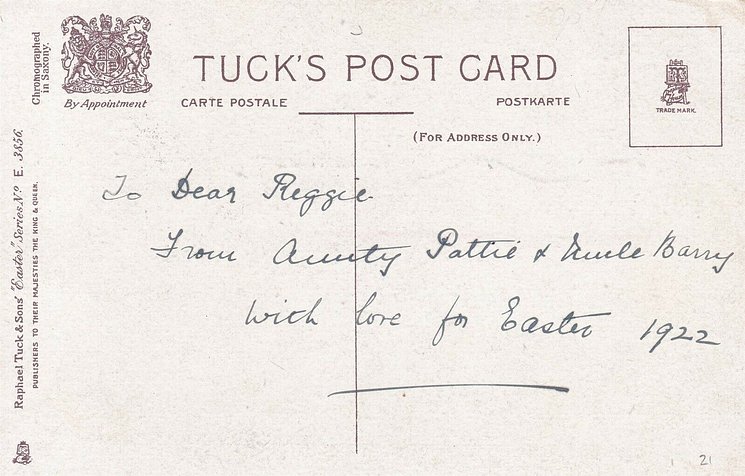 Chromographed
in Saxony.
By Appointment
TUCK'S POST CARD
CARTE POSTALE
POSTKARTE
(FOR ADDRESS ONLY.)
TRADE MARK.
To Dear Reggie
From Aunty Pattie & Uncle Barry
With love for Easter 1922
Raphael Tuck & Sons' "Easter" Series No. E. 3856.
PUBLISHERS TO THEIR MAJESTIES THE KING & QUEEN.
21